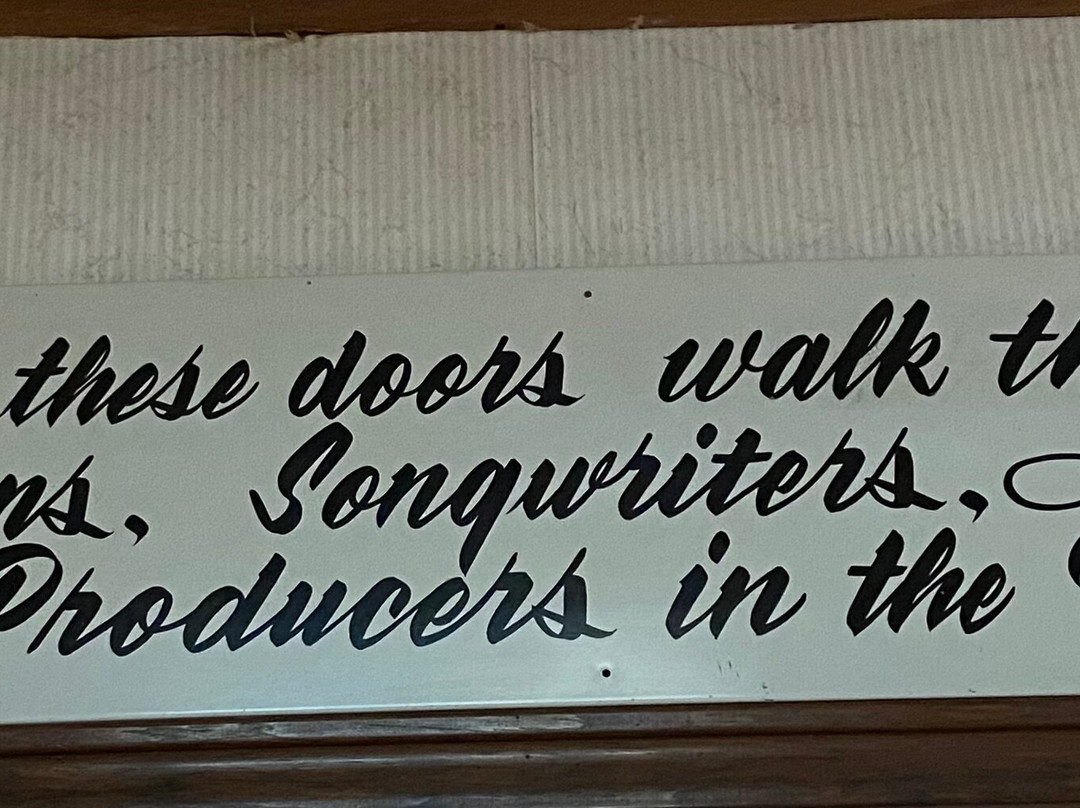 these doors walk th
ns, Songwriters,
Producers in the